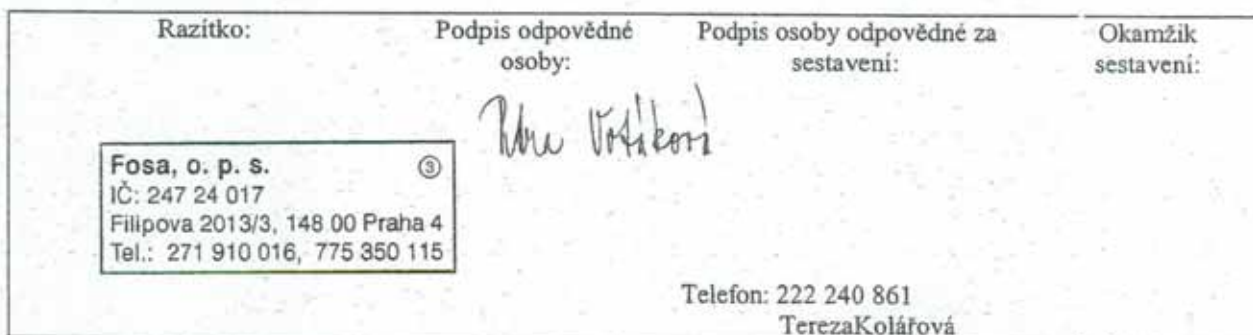 Razítko:
Podpis odpovědné
osoby:
Podpis osoby odpovědné za
sestavení:
Okamžik
sestavení:
Fosa, o. p. s. ③
IČ: 247 24 017
Filipova 2013/3, 148 00 Praha 4
Tel.: 271 910 016, 775 350 115
Telefon: 222 240 861
TerezaKolářová